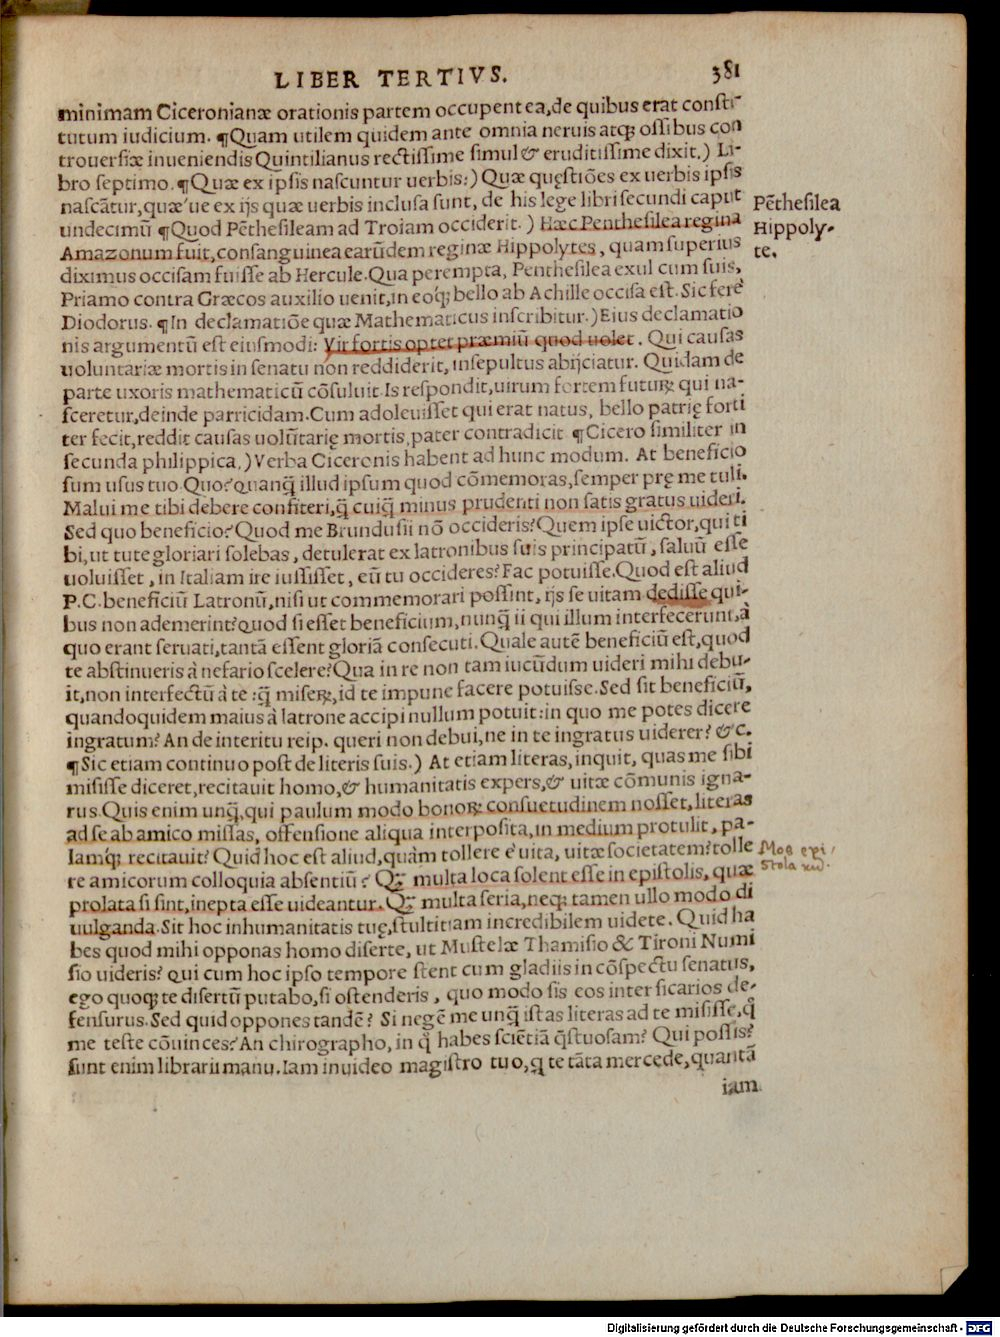 LIBER TERTIVS. 381
minimam Ciceronianæ orationis partem occupent ea,de quibus erat consti-
tutum iudicium. ¶Quam utilem quidem ante omnia neruis atqꝫ ossibus con
trouersiæ inueniendis Quintilianus rectissime simul & eruditissime dixit.) Li-
bro septimo. ¶Quæ ex ipsis nascuntur uerbis:) Quæ quęstiōes ex uerbis ipsis
nascātur,quæ'ue ex ijs quæ uerbis inclusa sunt, de his lege libri secundi caput
undecimū ¶Quod Pēthesileam ad Troiam occiderit.) Hæc Penthesilea regina
Amazonum fuit,consanguinea earūdem reginæ Hippolytes, quam superius
diximus occisam fuisse ab Hercule.Qua perempta, Penthesilea exul cum suis,
Priamo contra Græcos auxilio uenit,in eoqꝫ bello ab Achille occisa est.Sic ferè
Diodorus. ¶In declamatiōe quæ Mathematicus inscribitur.)Eius declamatio
nis argumentū est eiusmodi: Vir fortis optet præmiū quod uolet. Qui causas
uoluntariæ mortis in senatu non reddiderit, insepultus abijciatur. Quidam de
parte uxoris mathematicū cōsuluit.Is respondit,uirum fortem futurꝝ qui na-
sceretur,deinde parricidam.Cum adoleuisset qui erat natus, bello patrię forti
ter fecit,reddit causas uolūtarię mortis,pater contradicit ¶Cicero similiter in
secunda philippica,)Verba Ciceronis habent ad hunc modum. At beneficio
sum usus tuo.Quo?quanq̃ illud ipsum quod cōmemoras,semper prę me tuli.
Malui me tibi debere confiteri,q̃ cuiq̃ minus prudenti non satis gratus uideri.
Sed quo beneficio?Quod me Brundusii nō occideris?Quem ipse uictor,qui ti
bi,ut tute gloriari solebas, detulerat ex latronibus suis principatū, saluū esse
uoluisset, in Italiam ire iussisset, eū tu occideres?Fac potuisse.Quod est aliud
P.C.beneficiū Latronū,nisi ut commemorari possint, ijs se uitam dedisse qui-
bus non ademerint?quod si esset beneficium,nunq̃ ii qui illum interfecerunt,à
quo erant seruati,tantā essent gloriā consecuti.Quale autē beneficiū est,quod
te abstinueris à nefario scelere?Qua in re non tam iucūdum uideri mihi debu-
it,non interfectū à te :q̃ miserꝝ,id te impune facere potuisse.Sed sit beneficiū,
quandoquidem maius à latrone accipi nullum potuit:in quo me potes dicere
ingratum? An de interitu reip. queri non debui,ne in te ingratus uiderer? &c.
¶Sic etiam continuo post de literis suis.) At etiam literas,inquit, quas me sibi
misisse diceret,recitauit homo,& humanitatis expers,& uitæ cōmunis igna-
rus.Quis enim unq̃,qui paulum modo bonorꝝ consuetudinem nosset,literas
ad se ab amico missas, offensione aliqua interposita,in medium protulit, pa-
lamqꝫ recitauit? Quid hoc est aliud,quàm tollere è uita, uitæ societatem?tolle
re amicorum colloquia absentiū? Qꝫ multa ioca solent esse in epistolis, quæ
prolata si sint,inepta esse uideantur. Qꝫ multa seria,neqꝫ tamen ullo modo di
uulganda.Sit hoc inhumanitatis tuę,stultitiam incredibilem uidete. Quid ha
bes quod mihi opponas homo diserte, ut Mustelæ Thamisio & Tironi Numi
sio uideris? qui cum hoc ipso tempore stent cum gladiis in cōspectu senatus,
ego quoqꝫ te disertū putabo,si ostenderis, quo modo sis eos inter sicarios de-
fensurus.Sed quid oppones tandē? Si negē me unq̃ istas literas ad te misisse,q̊
me teste cōuinces?An chirographo, in q̊ habes sciētiā q̃stuosam? Qui possis?
sunt enim librarii manu.Iam inuideo magistro tuo, q te tāta mercede,quantā
iam
Pēthesilea
Hippoly-
te.
Mos epi
stola